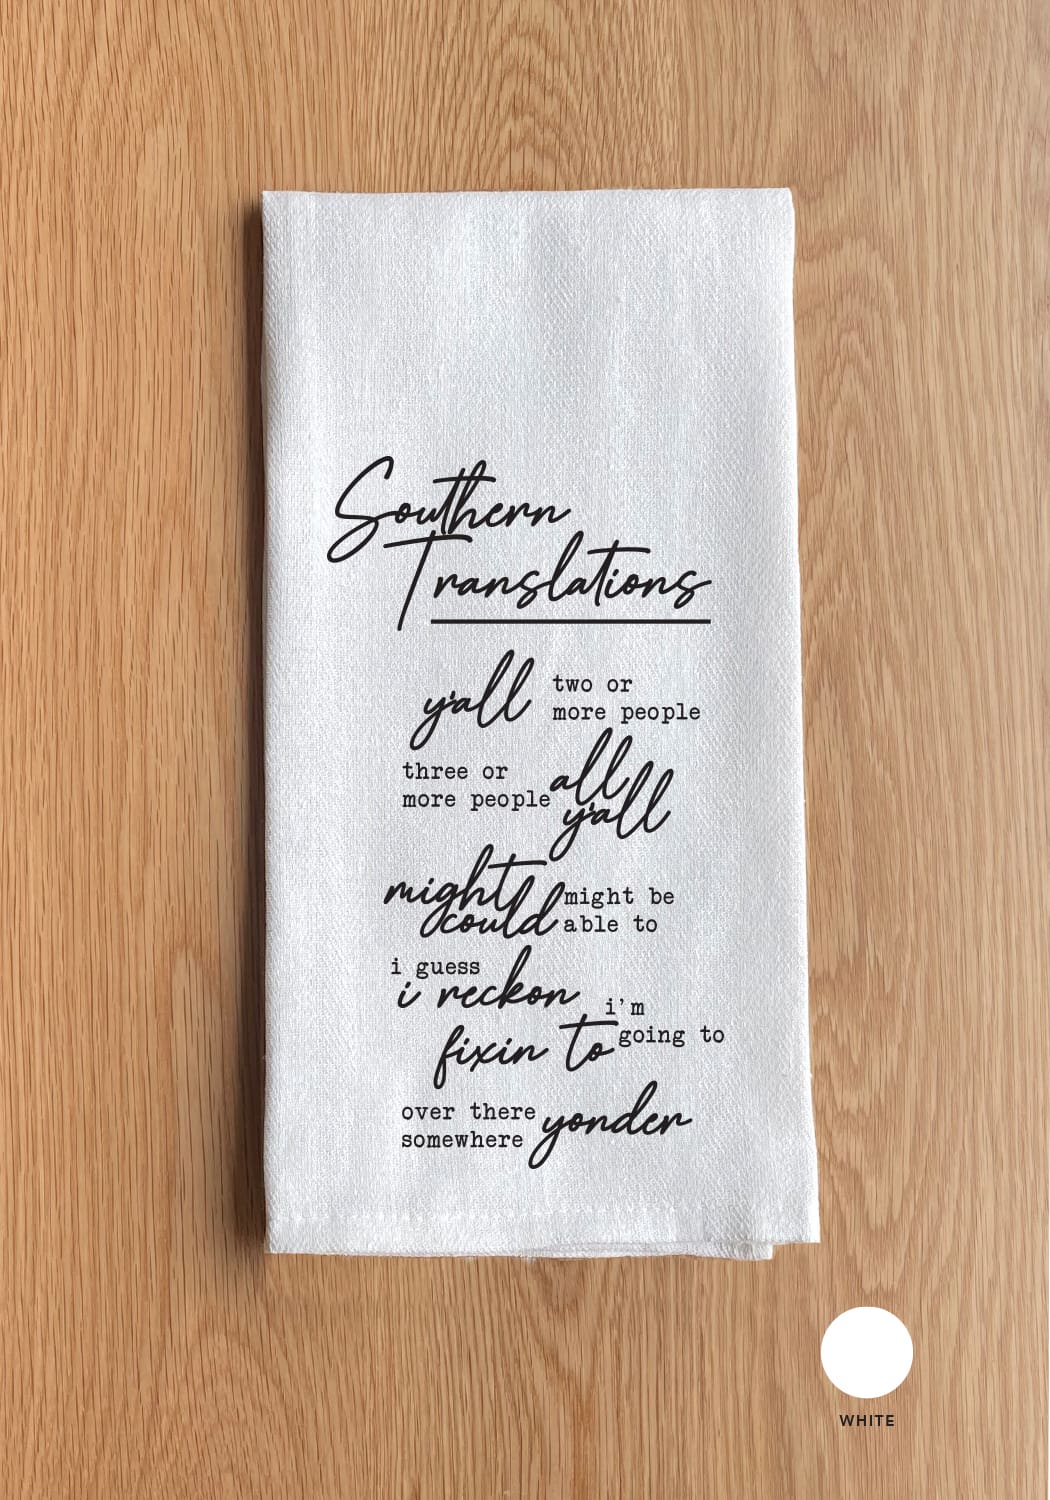 Southern
Translations
y'all two or
more people
three or
more people all
y'all
might might be
could able to
i guess
i reckon
i'm
fixin to going to
over there yonder
somewhere
WHITE